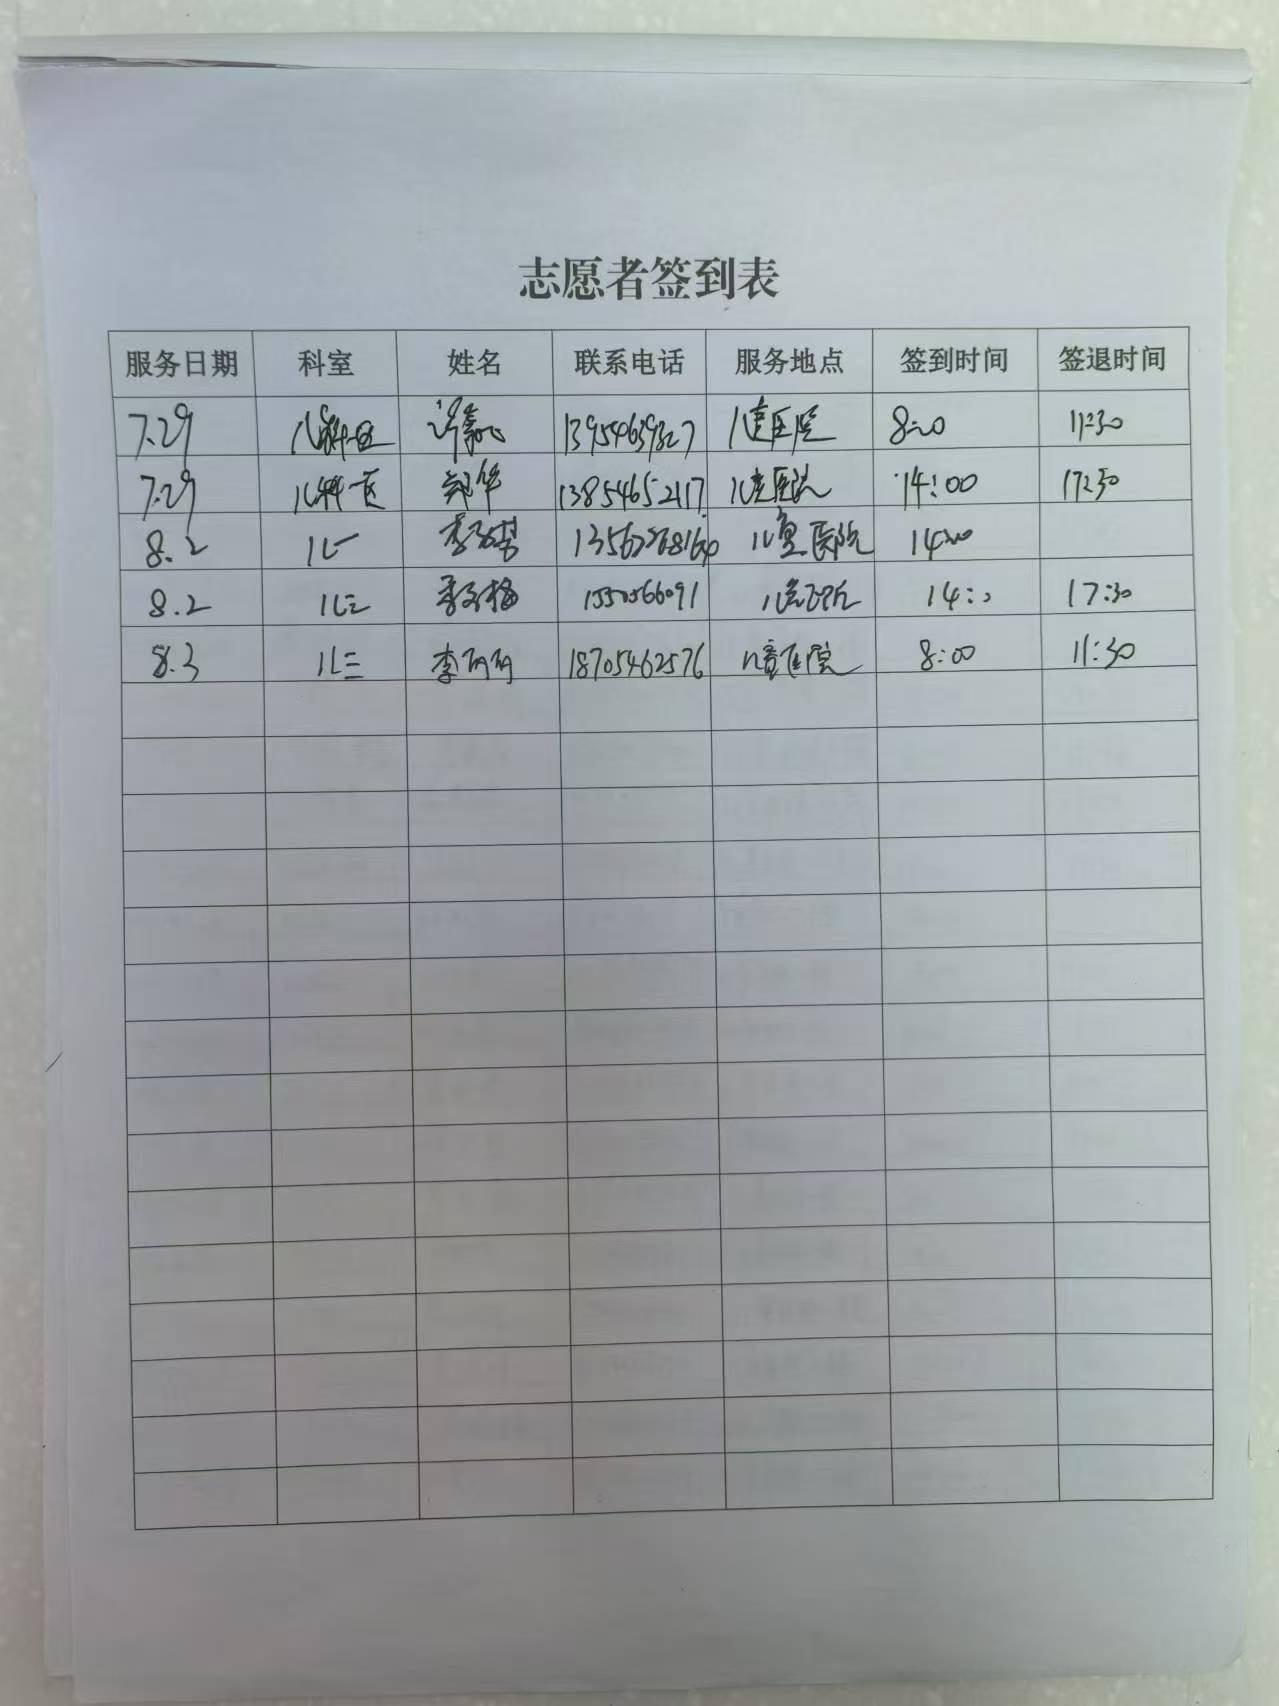 志愿者签到表
服务日期 科室 姓名 联系电话 服务地点 签到时间 签退时间
7.29 儿科一区 13954639327 儿童医院 8:00 11:30
7.29 儿科一区 郭华 13854652117 儿童医院 14:00 17:30
8.2 儿一 儿童医院 14:00
8.2 儿三 李文梅 儿童医院 14:00 17:30
8.3 儿三 李丽丽 18705462576 儿童医院 8:00 11:30